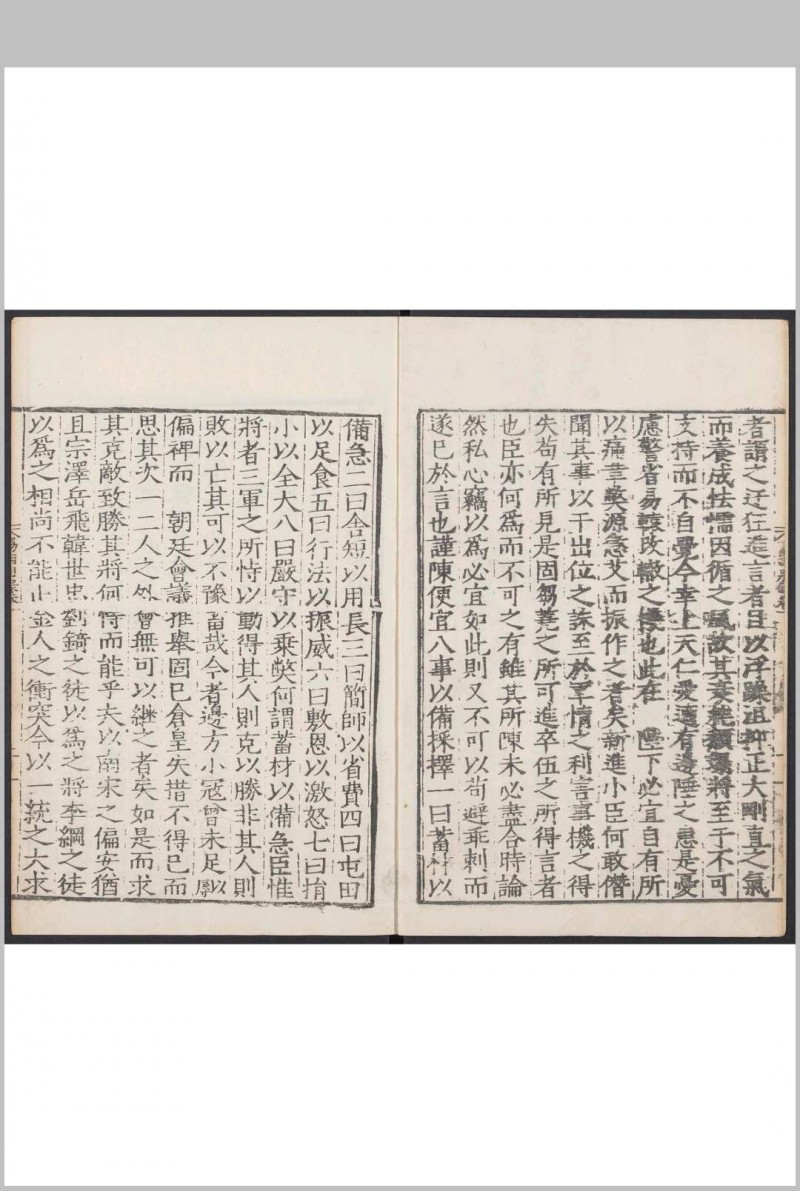 者謂之迂狂進言者目以浮躁沮抑正大剛直之氣
而養成怯懦因循之風故其衰耗頹塌將至于不可
支持而不自覺今幸上天仁愛適有邊陲之患是憂
慮警省易轅改轍之機也此在　陛下必宜自有所
以痛革弊源急艾而振作之者矣新進小臣何敢僭
聞其事以干出位之誅至於軍情之利害事機之得
失苟有所見是固芻蕘之所可進卒伍之所得言者
也臣亦何爲而不可之有雖其所陳未必盡合時論
然私心竊以爲必宜如此則又不可以苟避乖剌而
遂已於言也謹陳便宜八事以備採擇一曰蓄材以
備急二曰舍短以用長三曰簡師以省費四曰屯田
以足食五曰行法以振威六曰敷恩以激怒七曰捐
小以全大八曰嚴守以乘弊何謂蓄材以備急臣惟
將者三軍之所恃以動得其人則克以勝非其人則
敗以亡其可以不豫畜哉今者邊方小寇曾未足以
偏裨而　朝廷會議推舉固已倉皇失措不得已而
思其次一二人之外曾無可以繼之者矣如是而求
其克敵致勝其將何恃而能乎夫以南宋之偏安猶
且宗澤岳飛韓世忠劉錡之徒以爲之將李綱之徒
以爲之相尚不能止金人之衝突今以一統之大求